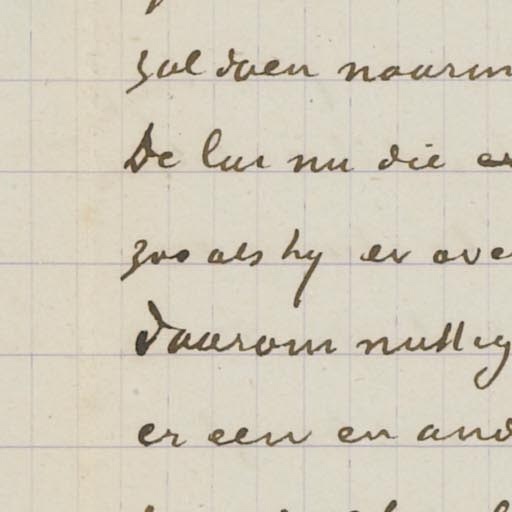 zal doen naarm
De lui nu die er
zooals hy er ove
daarom nuttig
er een en and